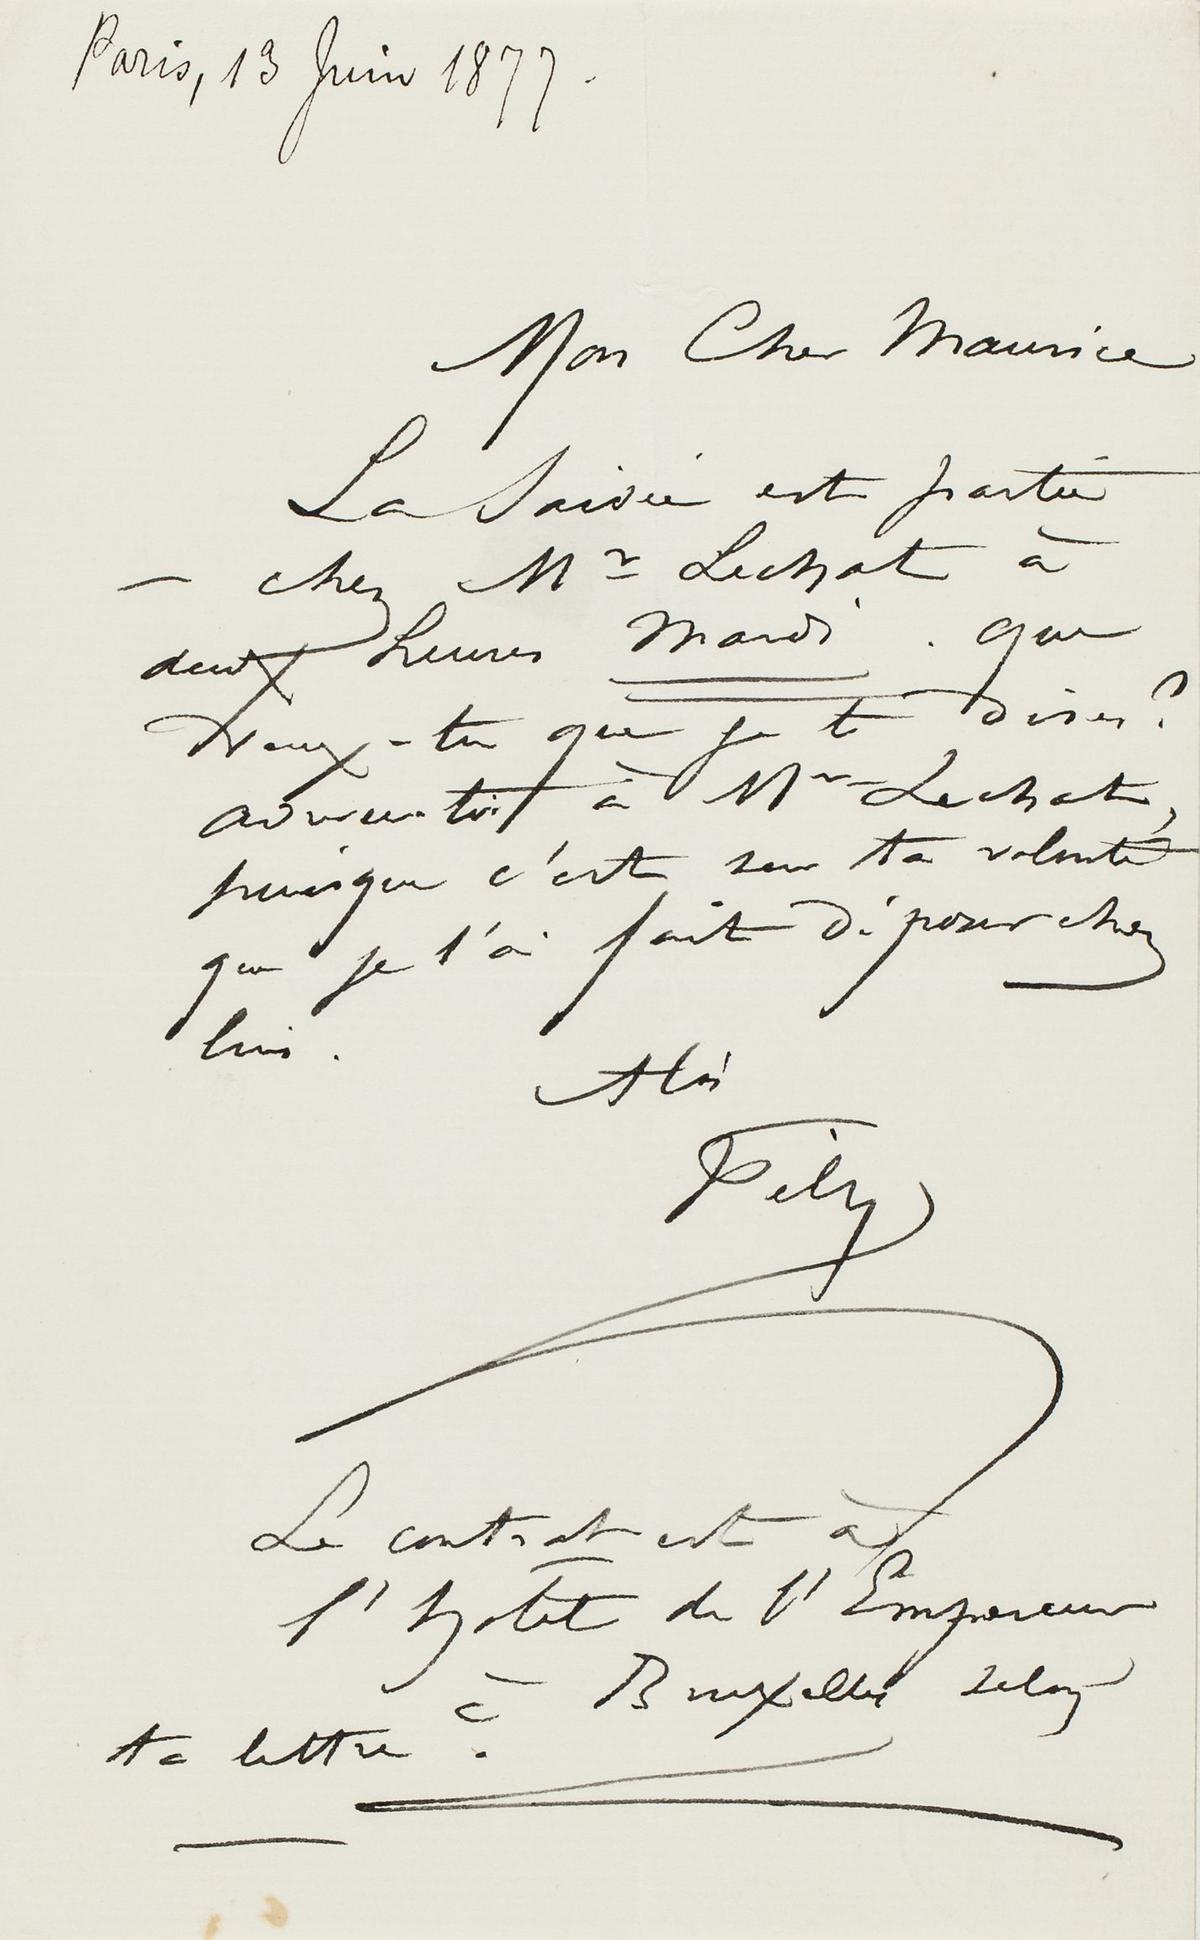 Paris, 13 Juin 1877.
Mon Cher Maurice
La Soirée est partie
– chez Mr Lechat à
deux heures Mardi . que
Veux-tu que je te dises?
adresse-toi à Mr Lechat,
puisque c'est sur ta volonté
que je l'ai fait déposer chez
lui .
Le contrat est à
l'hôtel de l'Empereur
à Bruxelles selon
ta lettre .